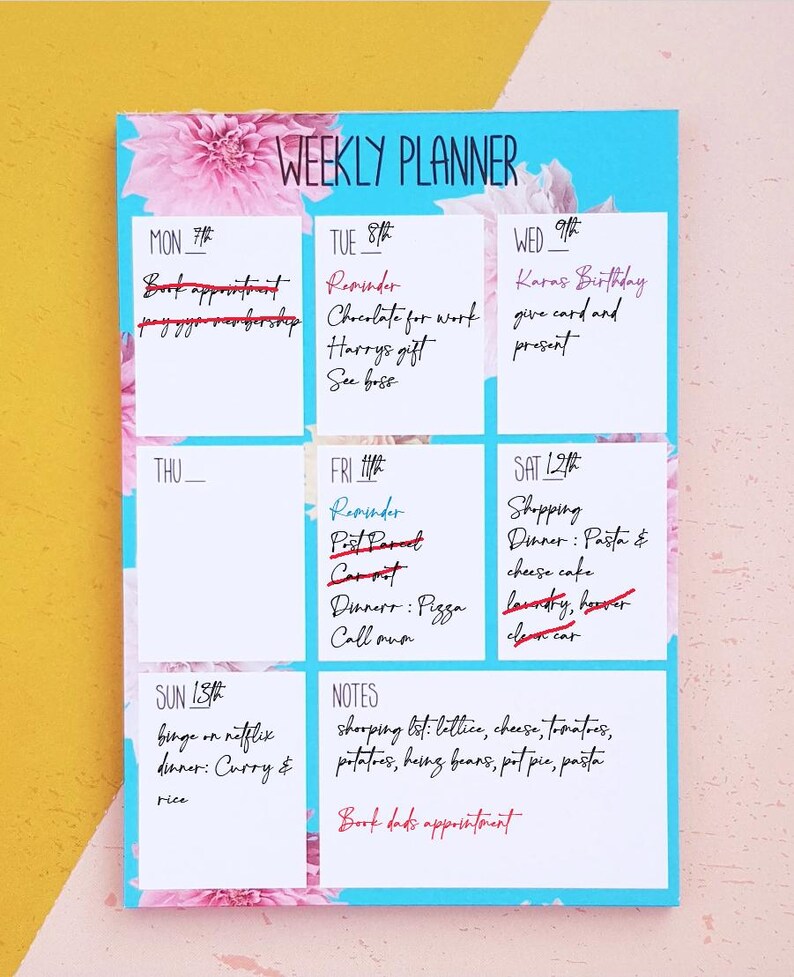 WEEKLY PLANNER
MON 7th
Book appointment
pay gym membership
TUE 8th
Reminder
Chocolate for work
Harrys gift
See boss
WED 9th
Karas Birthday
give card and
present
THU
FRI 11th
Reminder
Post Parcel
Car mot
Dinnerr : Pizza
Call mum
SAT 12th
Shopping
Dinner : Pasta &
cheese cake
laundry, hoover
clean car
SUN 13th
binge on netflix
dinner: Curry &
rice
NOTES
shooping lst: lettice, cheese, tomatoes,
potatoes, heinz beans, pot pie, pasta
Book dads appointment